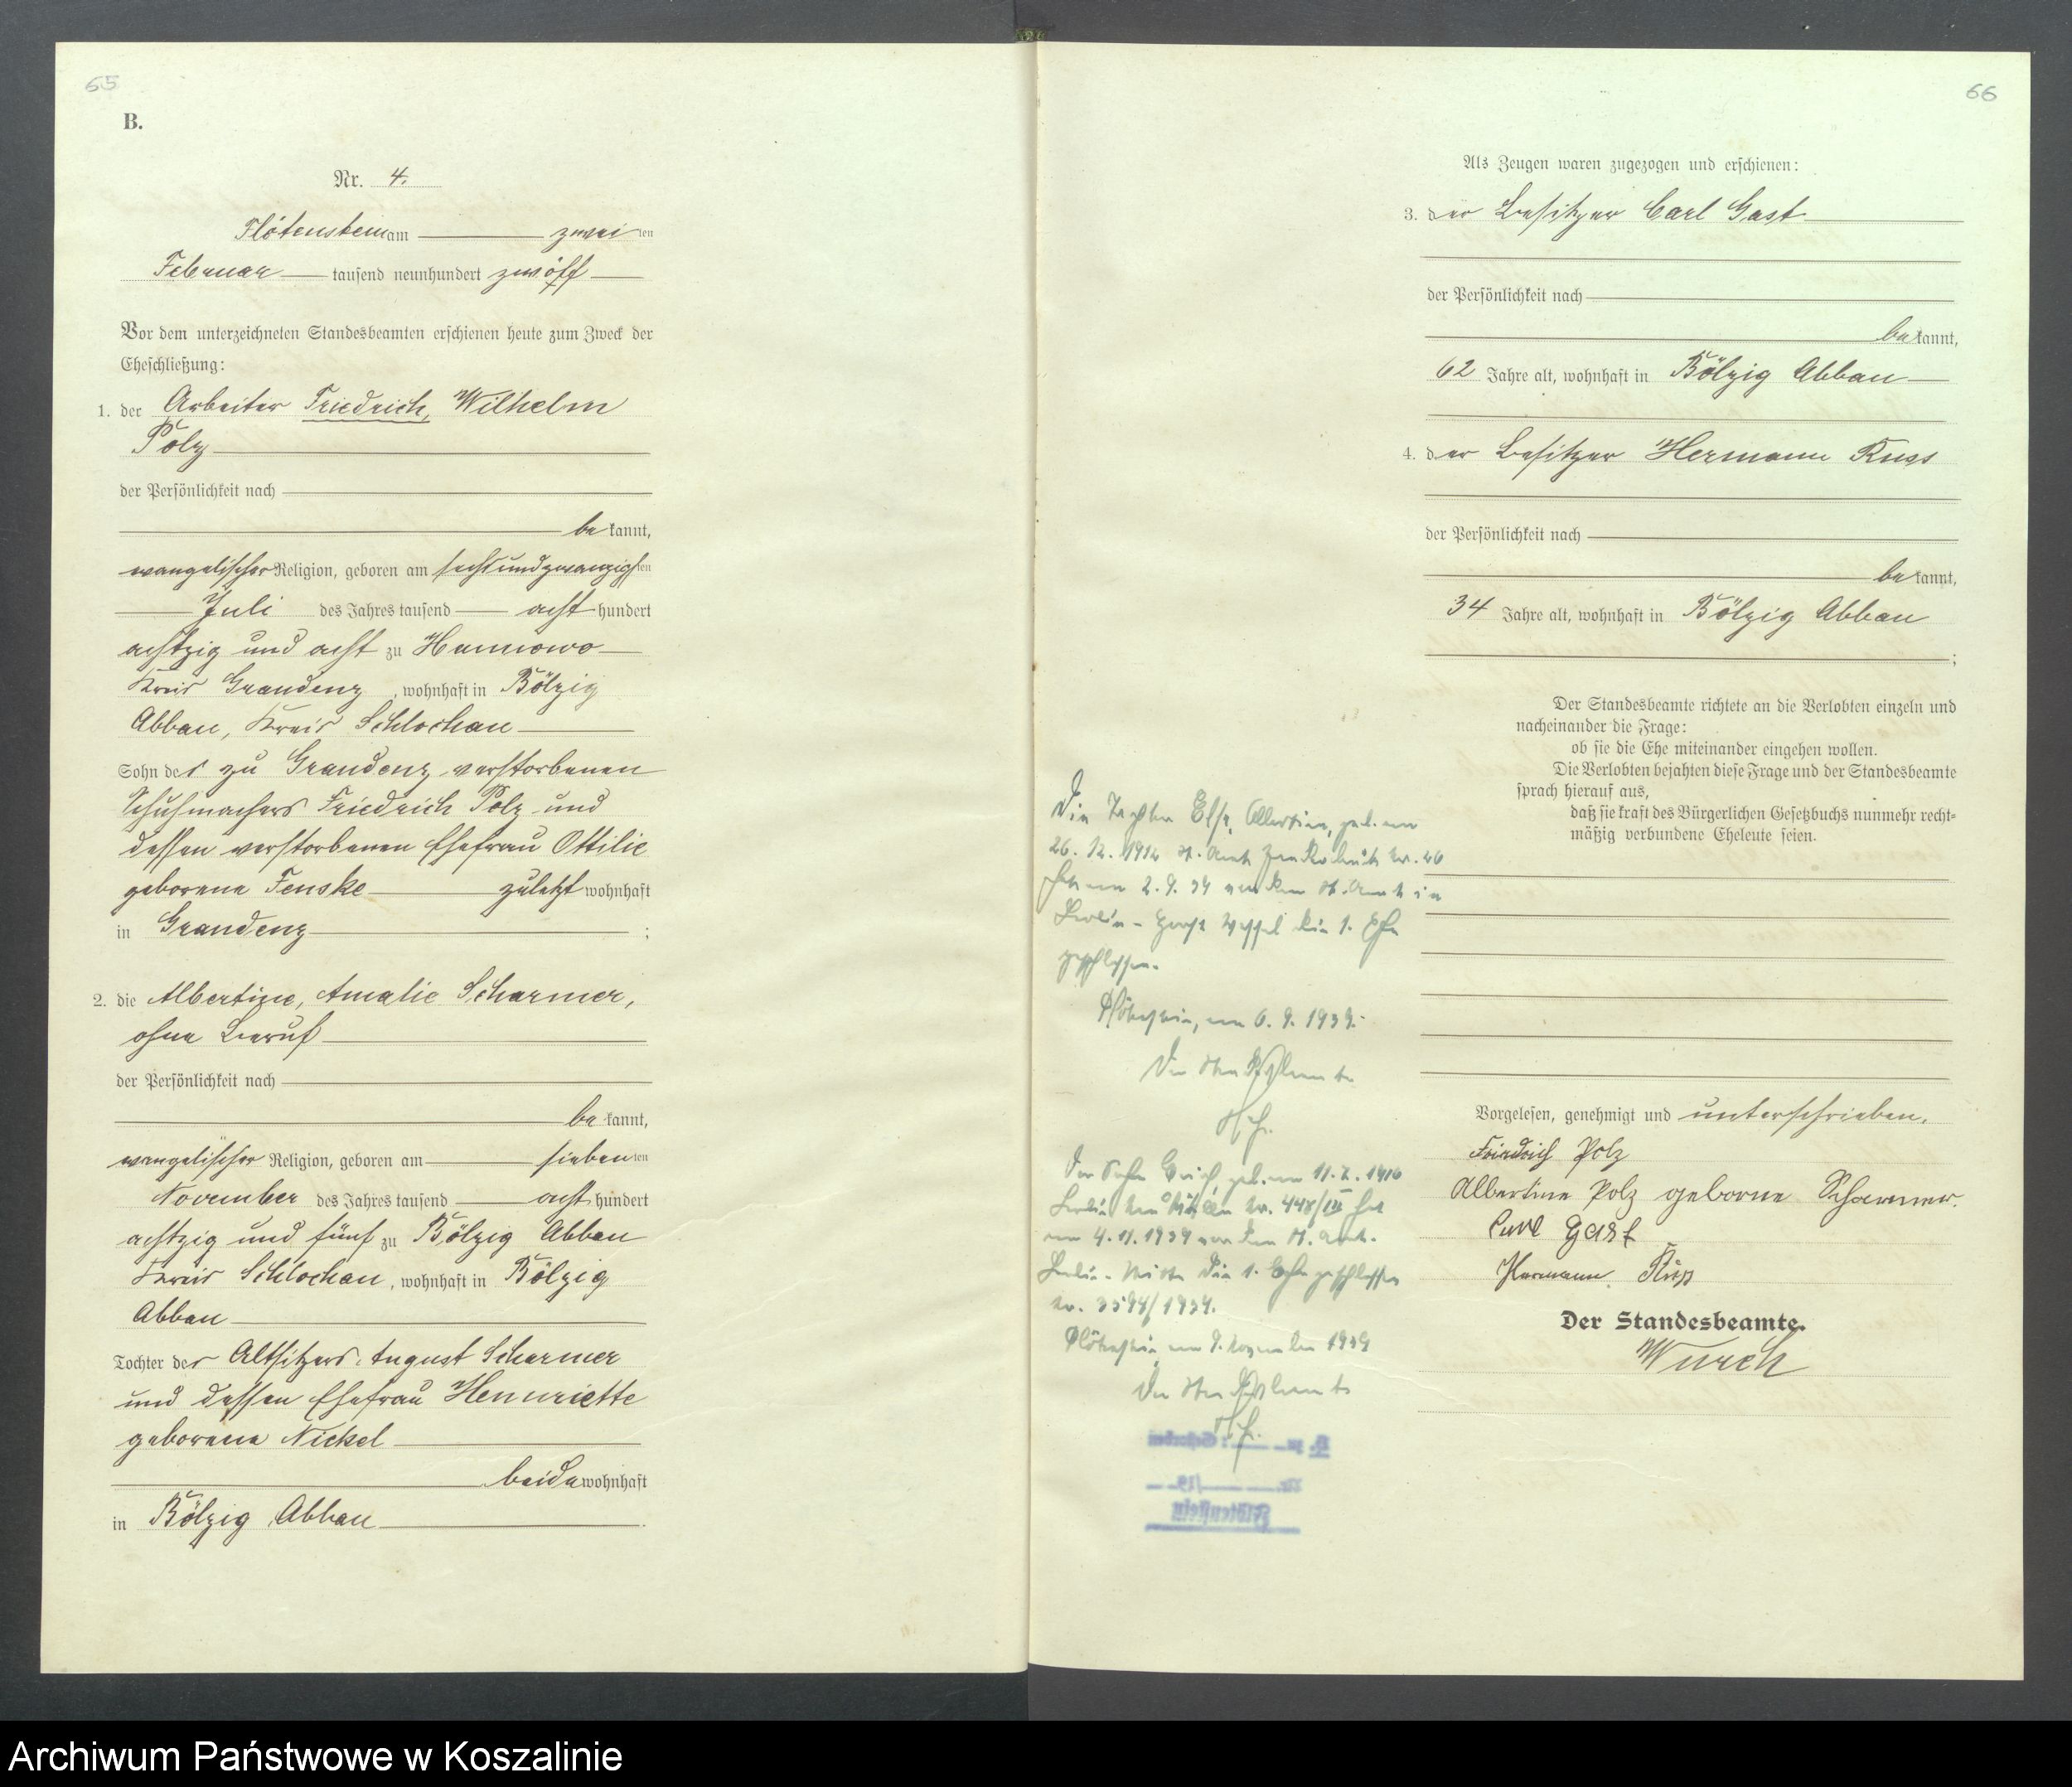 65
B.
Nr. 4.
Flötenstein am zwei ten
Februar tausend neunhundert zwölf
Vor dem unterzeichneten Standesbeamten erschienen heute zum Zweck der
Eheschließung:
1. der Arbeiter Friedrich, Wilhelm
Polz
der Persönlichkeit nach
be kannt,
evangelischer Religion, geboren am sechsundzwanzigsten
Juli des Jahres tausend acht hundert
achtzig und acht zu Hannowo
Kreis Graudenz, wohnhaft in Bölzig
Abbau, Kreis Schlochau
Sohn des zu Graudenz verstorbenen
Schuhmachers Friedrich Polz und
dessen verstorbenen Ehefrau Ottilie
geborene Fenske zuletzt wohnhaft
in Graudenz ;
2. die Albertine, Amalie Scharmer,
ohne Beruf
der Persönlichkeit nach
be kannt,
evangelischer Religion, geboren am sieben ten
November des Jahres tausend acht hundert
achtzig und fünf zu Bölzig Abbau
Kreis Schlochau, wohnhaft in Bölzig
Abbau
Tochter des Altsitzers August Scharmer
und dessen Ehefrau Henriette
geborene Nickel
beide wohnhaft
in Bölzig Abbau .
66
Als Zeugen waren zugezogen und erschienen:
3. der Besitzer Carl Gast
der Persönlichkeit nach
be kannt,
62 Jahre alt, wohnhaft in Bölzig Abbau
4. der Besitzer Hermann Russ
der Persönlichkeit nach
be kannt,
34 Jahre alt, wohnhaft in Bölzig Abbau
;
Der Standesbeamte richtete an die Verlobten einzeln und
nacheinander die Frage:
ob sie die Ehe miteinander eingehen wollen.
Die Verlobten bejahten diese Frage und der Standesbeamte
sprach hierauf aus,
daß sie kraft des Bürgerlichen Gesetzbuchs nunmehr recht-
mäßig verbundene Eheleute seien.
Vorgelesen, genehmigt und unterschrieben.
Friedrich Polz
Albertine Polz geborne Scharmer.
Carl Gast
Hermann Russ
Der Standesbeamte.
Wurch
Die Tochter Else, Albertine, geb. am
26. 12. 1912 St. Amt Nr. 26
hat am 2. 9. 39 vor dem St. Amt in
Berlin - Horst Wessel die 1. Ehe
geschlossen.
Flötenstein, am 6. 9. 1939.
Der Standesbeamte
Der Sohn Erich, geb. am 11. 2. 1916
Berlin Nr. 448/III hat
am 4. 11. 1939 vor dem St. Amt
Berlin - Mitte die 1. Ehe geschlossen
Nr. 3594/1939.
Flötenstein am 9. November 1939
Der Standesbeamte
Flötenstein
Archiwum Państwowe w Koszalinie